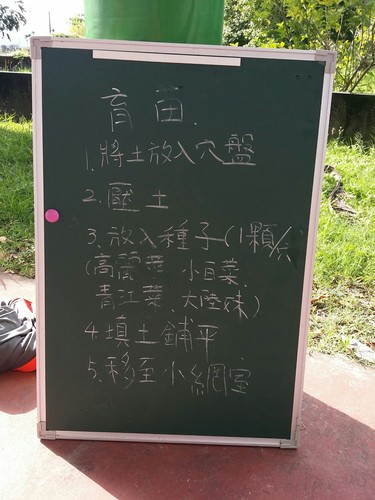 育苗.
1.將土放入穴盤
2.壓土
3.放入種子(1顆/穴
(高麗菜 小白菜
青江菜、大陸妹)
4.填土鋪平
5.移至小網室